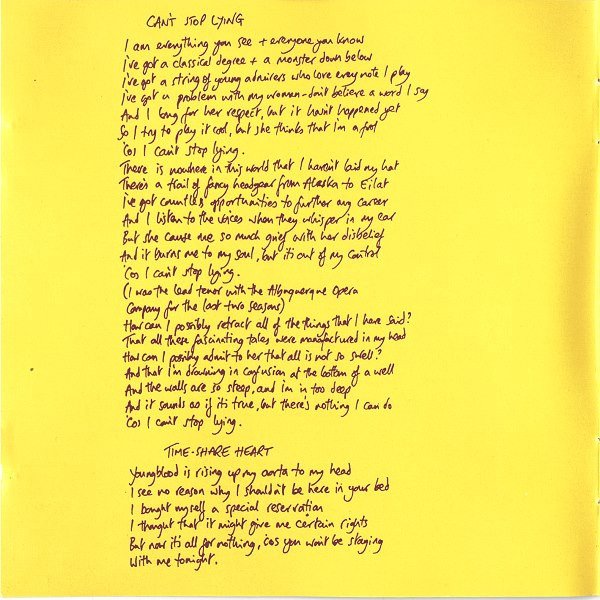 CAN'T STOP LYING
I am everything you see + everyone you know
I've got a classical degree + a monster down below
I've got a string of young admirers who love every note I play
I've got a problem with my women - don't believe a word I say
And I long for her respect, but it hasn't happened yet
So I try to play it cool, but she thinks that I'm a fool
'Cos I can't stop lying.
There is nowhere in this world that I haven't laid my hat
There's a trail of fancy headgear from Alaska to Eilat
I've got countless opportunities to further my career
And I listen to the voices when they whisper in my ear
But she cause me so much grief with her disbelief
And it burns me to my soul, but it's out of my control
'Cos I can't stop lying.
(I was the lead tenor with the Albuquerque Opera
Company for the last two seasons)
How can I possibly retract all of the things that I have said?
That all these fascinating tales were manufactured in my head
How can I possibly admit to her that all is not so swell?
And that I'm drowning in confusion at the bottom of a well
And the walls are so steep, and I'm in too deep
And it sounds as if it's true, but there's nothing I can do
'Cos I can't stop lying.
TIME-SHARE HEART
Youngblood is rising up my aorta to my head
I see no reason why I shouldn't be here in your bed
I bought myself a special reservation
I thought that it might give me certain rights
But now it's all for nothing, 'cos you won't be staying
With me tonight.